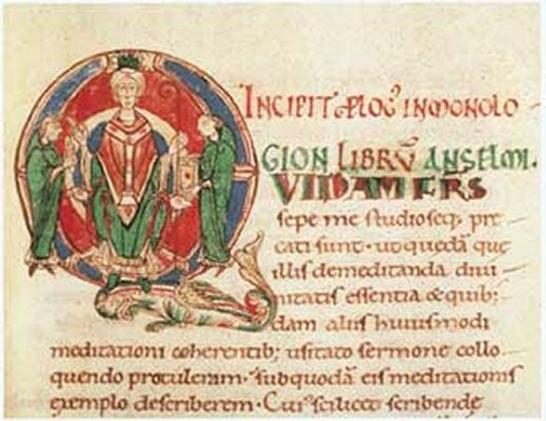 INCIPIT PLOG' IN MONOLO
GION LIBRŪ ANSELMI.
QUIDAM FRS
sepe me studioseq; pre
cati sunt· ut quedā que
illis de meditanda diui
nitatis essentia & quib;
dam aliis huiusmodi
meditationi coherentib; usitato sermone collo
quendo protuleram· sub quodā eis meditationis
exemplo describerem· Cui' scilicet scribende